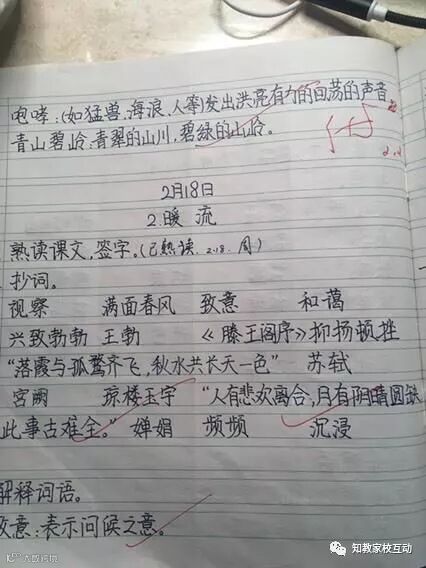 咆哮:(如猛兽、海浪、人等)发出洪亮有力的回荡的声音
青山碧岭:青翠的山川,碧绿的山岭。
2月18日
2.暖 流
熟读课文,签字。(已熟读. 2.18. 周)
抄词。
视察 满面春风 致意 和蔼
兴致勃勃 王勃 《滕王阁序》抑扬顿挫
“落霞与孤鹜齐飞,秋水共长天一色” 苏轼
宫阙 琼楼玉宇 “人有悲欢离合,月有阴晴圆缺
此事古难全。” 婵娟 频频 沉浸
解释词语。
致意:表示问候之意。
知教家校互动
大数跨境